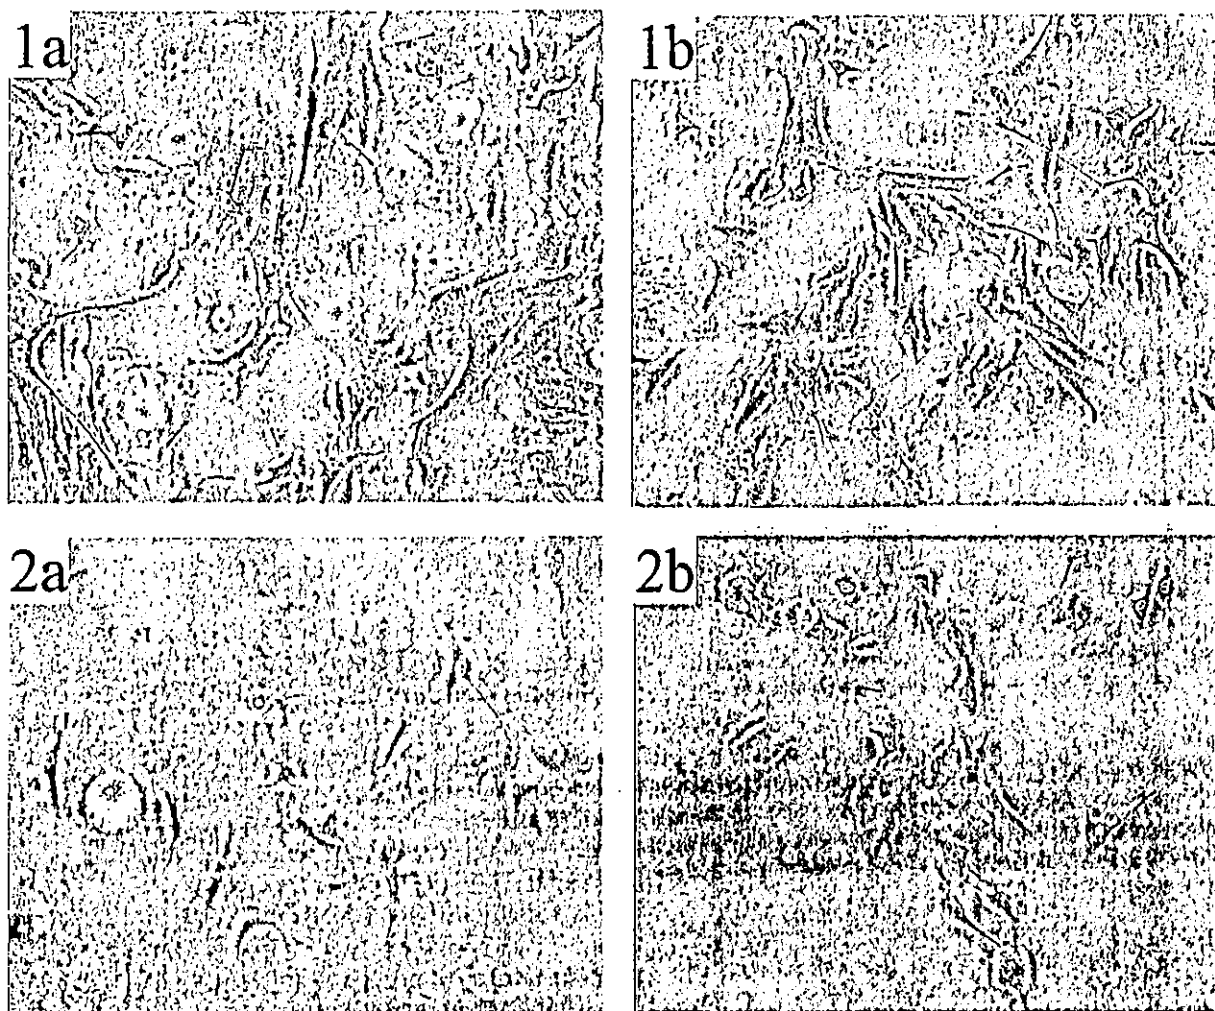 1a
1b
2a
2b